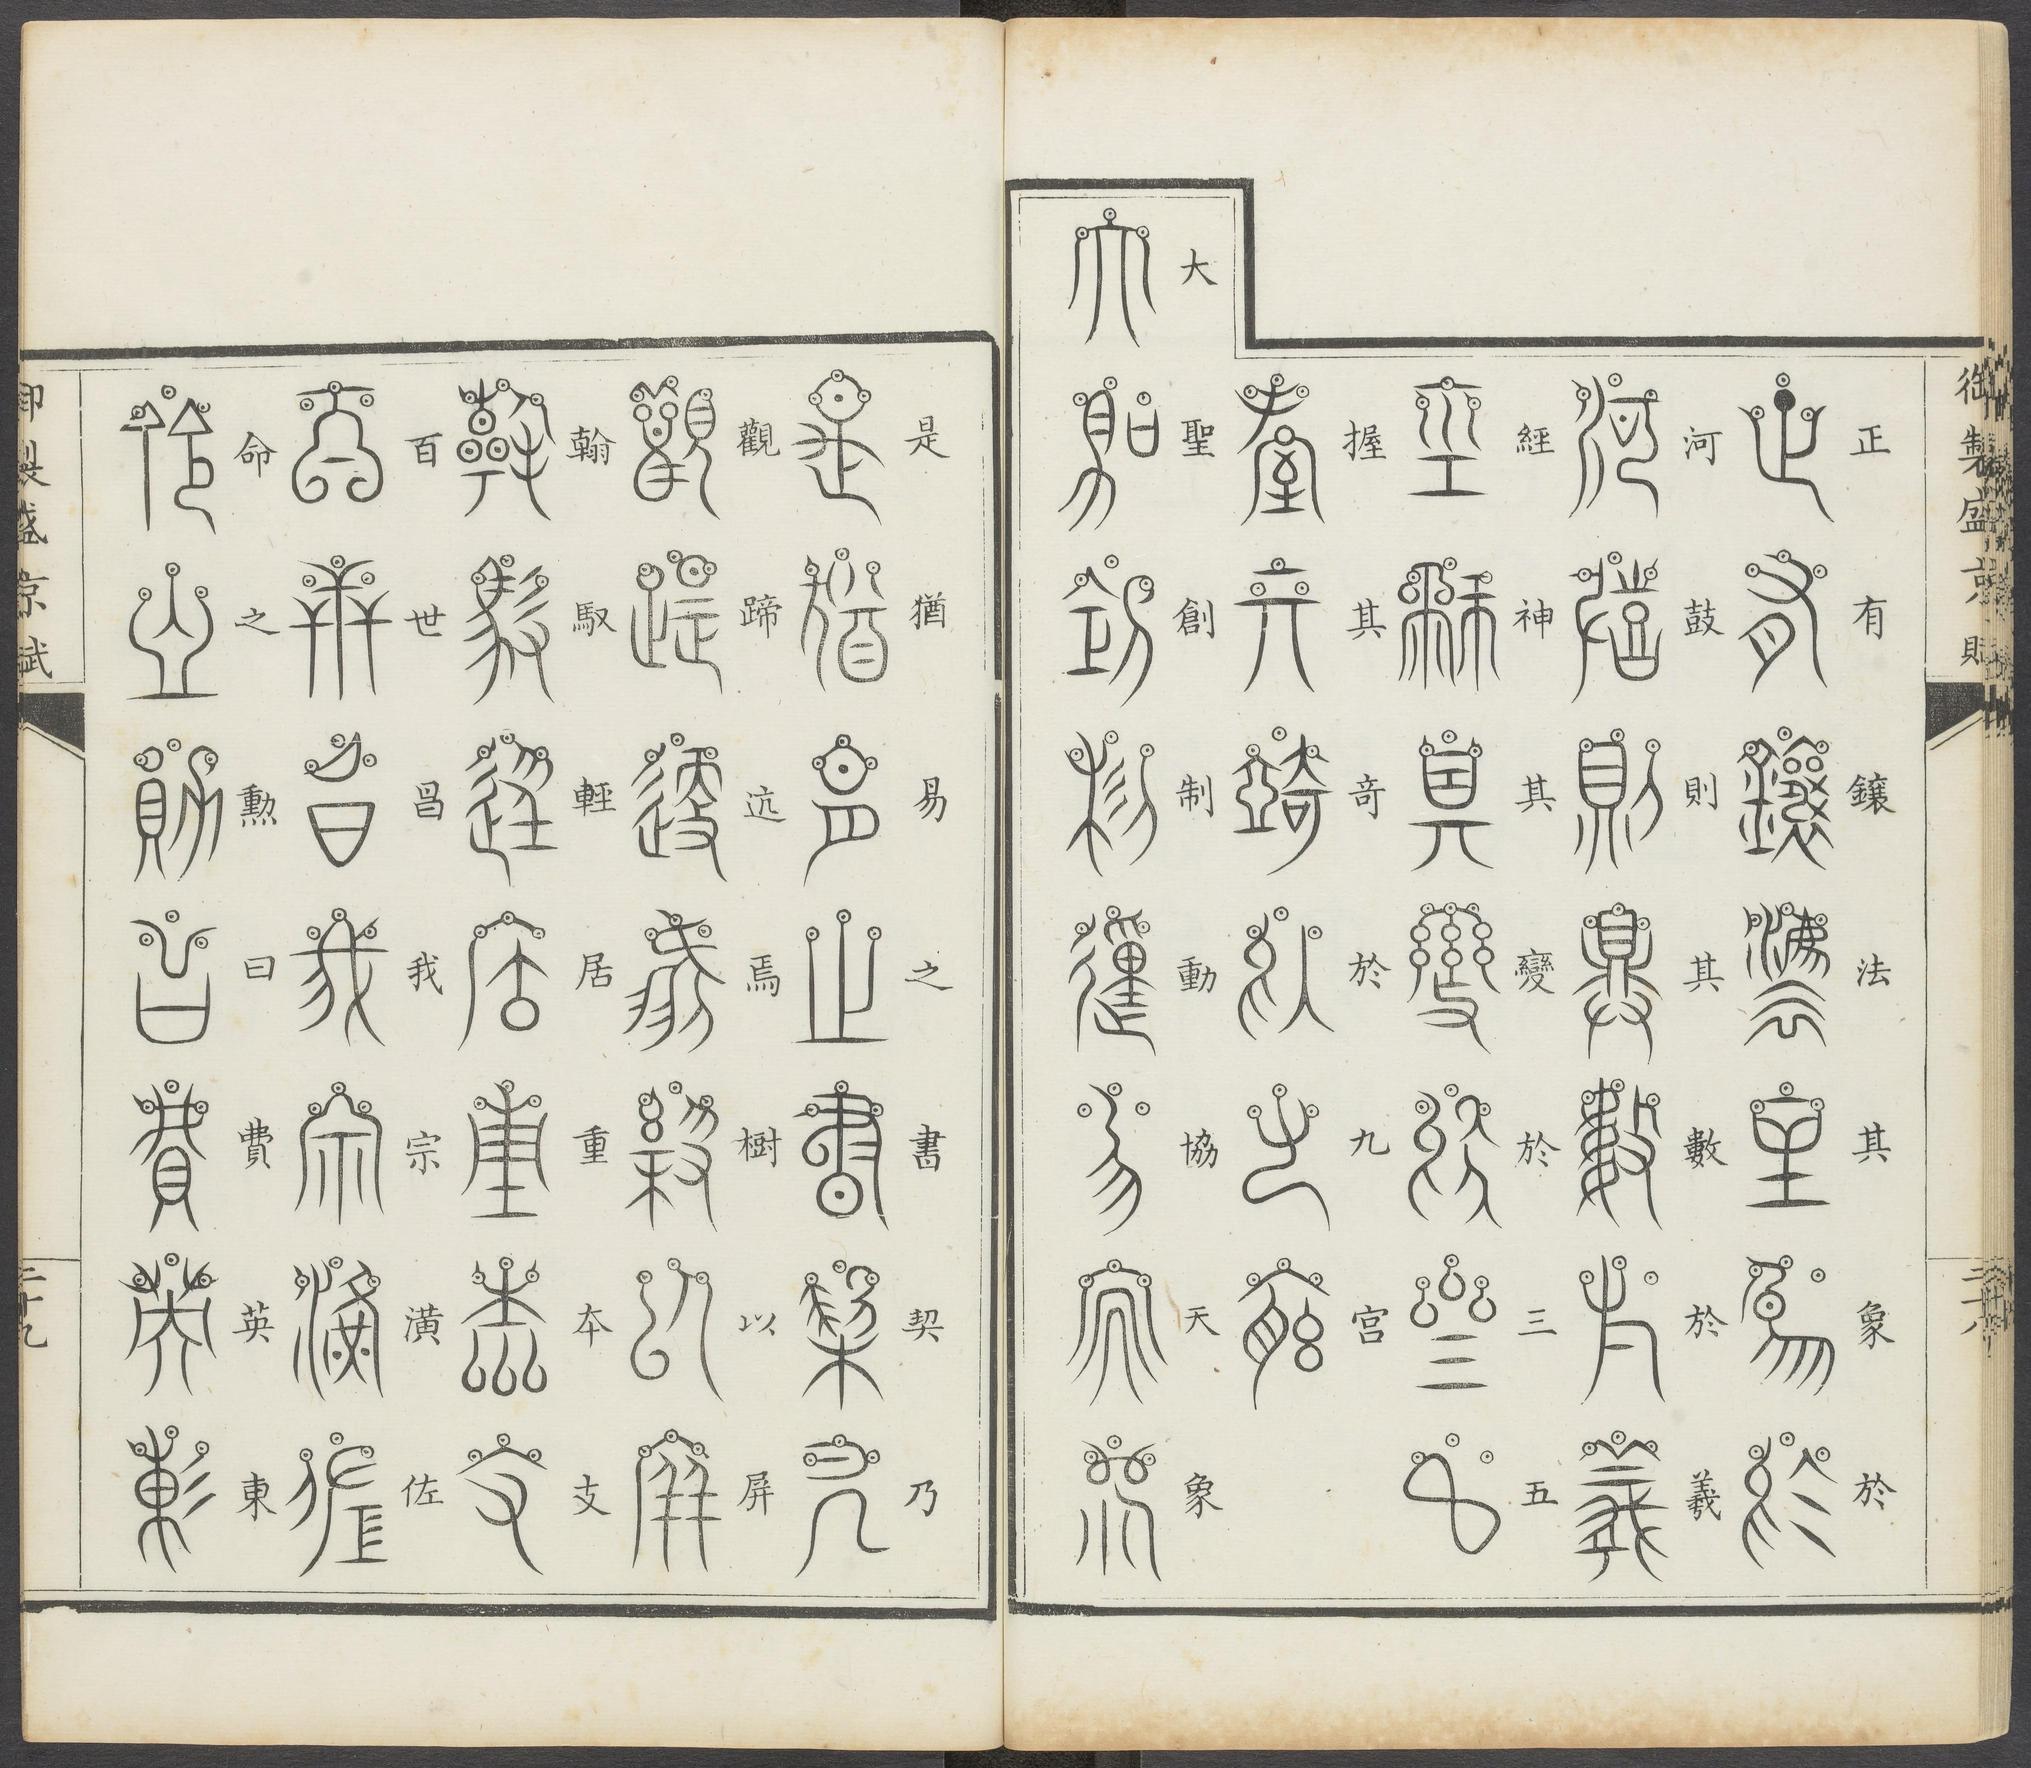 御製盛京賦
正有鑲法其象於
河鼓則其數於羲
經神其變於三五
握其竒於九宮
大聖創制動協天象
二十八
是猶易之書契乃
觀蹄迒焉樹以屏
翰馭輕居重夲支
百世昌我宗潢佐
命之勲曰費英東
御製盛京賦
二十九